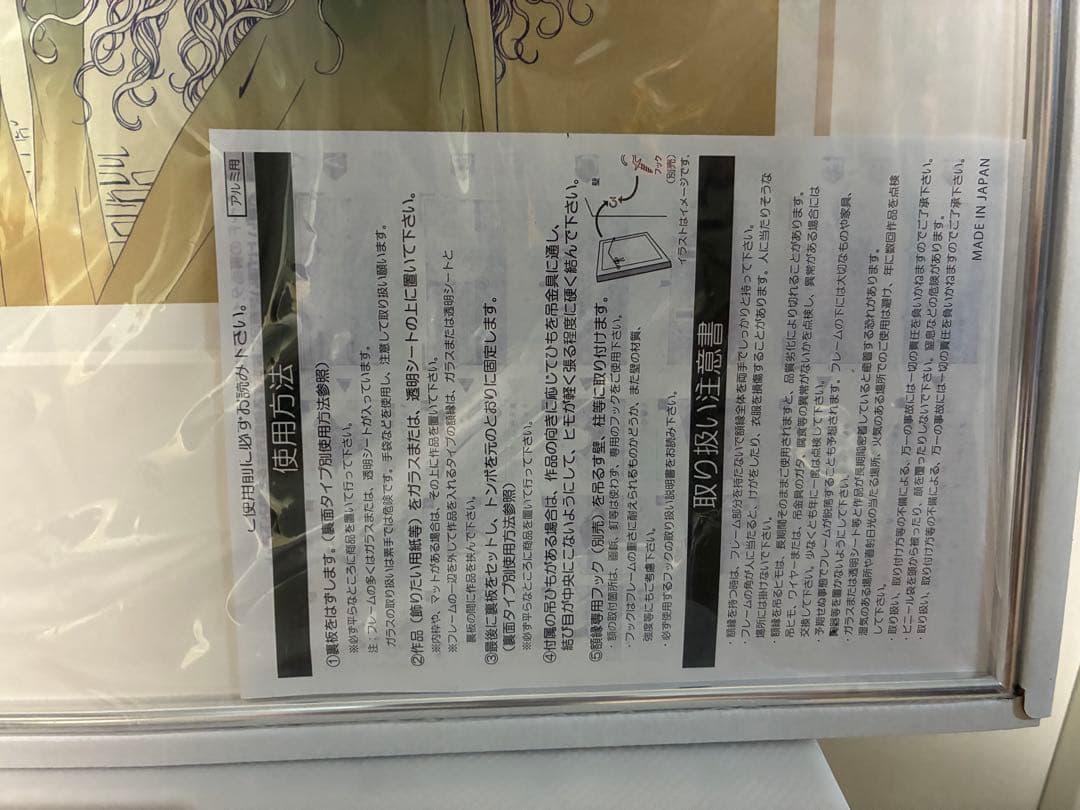 アルミ用
ご使用前に必ずお読み下さい。
使用方法
①裏板をはずします。(裏面タイプ別使用方法参照)
※必ず平らなところに商品を置いて行って下さい。
注:フレームの多くはガラスまたは、透明シートが入っています。
ガラスの取り扱いは素手では危険です。手袋などを使用し、注意して取り扱い願います。
②作品(飾りたい用紙等)をガラスまたは、透明シートの上に置いて下さい。
※内枠や、マットがある場合は、その上に作品を置いて下さい。
※フレームの一辺を外して作品を入れるタイプの額縁は、ガラスまたは透明シートと
裏板の間に作品を挟んで下さい。
③最後に裏板をセットし、トンボを元のとおりに固定します。
(裏面タイプ別使用方法参照)
※必ず平らなところに商品を置いて行って下さい。
④付属の吊ひもがある場合は、作品の向きに応じてひもを吊金具に通し、
結び目が中央にこないようにして、ヒモが軽く張る程度に硬く結んで下さい。
⑤額縁専用フック(別売)を吊るす壁、柱等に取り付けます。
・額の取付箇所は、画鋲、釘等は使わず、専用のフックをご使用下さい。
・フックはフレームの重さに耐えられるものかどうか、また壁の材質、
強度等にもご考慮下さい。
・必ず使用するフックの取り扱い説明書をお読み下さい。
壁
フック
(別売)
イラストはイメージです。
取り扱い注意書
・額縁を持つ時は、フレーム部分を持たないで額縁全体を両手でしっかりと持って下さい。
・フレームの角が人に当たると、けがをしたり、衣服を損傷することがあります。人に当たりそうな
場所には掛けないで下さい。
・額縁を吊るヒモは、長期間そのまま使用されますと、品質劣化により切れることがあります。
吊ヒモ、ワイヤーまたは、吊金具のガタ、腐食等の異常がないかを点検し、異常がある場合には
交換して下さい。少なくとも年に一度は点検して下さい。
・予期せぬ事態でフレームが脱落することも予想されます。フレームの下には大切なものや家具、
陶器等を置かないようにして下さい。
・ガラスまたは透明シート等と作品が長期間密着していると癒着する恐れがあります。
湿気のある場所や直射日光の当たる場所、火気のある場所でのご使用は避け、年に数回作品を点検
して下さい。
・取り扱い、取り付け方等の不備による、万一の事故には一切の責任を負いかねますのでご了承下さい。
・ビニール袋を頭から被ったり、顔を覆ったりしないで下さい。窒息などの危険があります。
・取り扱い、取り付け方等の不備による、万一の事故には一切の責任を負いかねますのでご了承下さい。
MADE IN JAPAN